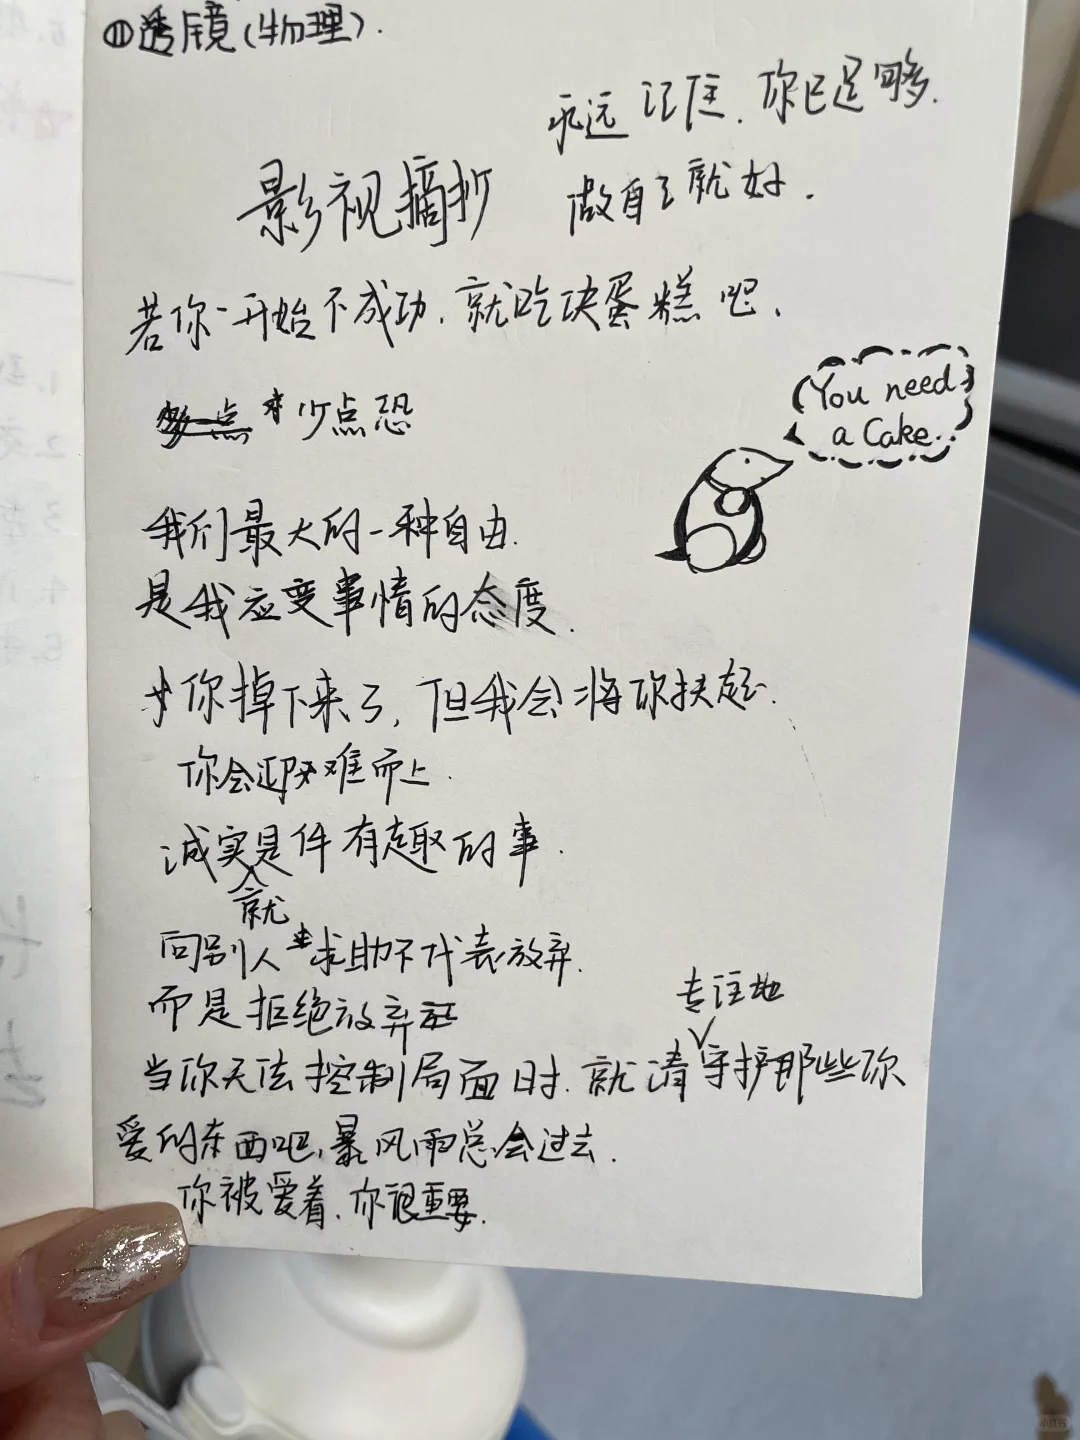 ⑪透镜(物理).
永远记住.你已足够.
影视摘抄
做自己就好.
若你一开始不成功.就吃块蛋糕吧.
少点恐
You need
a Cake.
我们最大的一种自由.
是我应变事情的态度.
你掉下来了,但我会将你扶起.
你会迎难而上.
诚实就是件有趣的事.
向别人求助不代表放弃.
而是拒绝放弃
专注地
当你无法控制局面时.就请守护那些你
爱的东西吧,暴风雨总会过去.
你被爱着.你很重要.